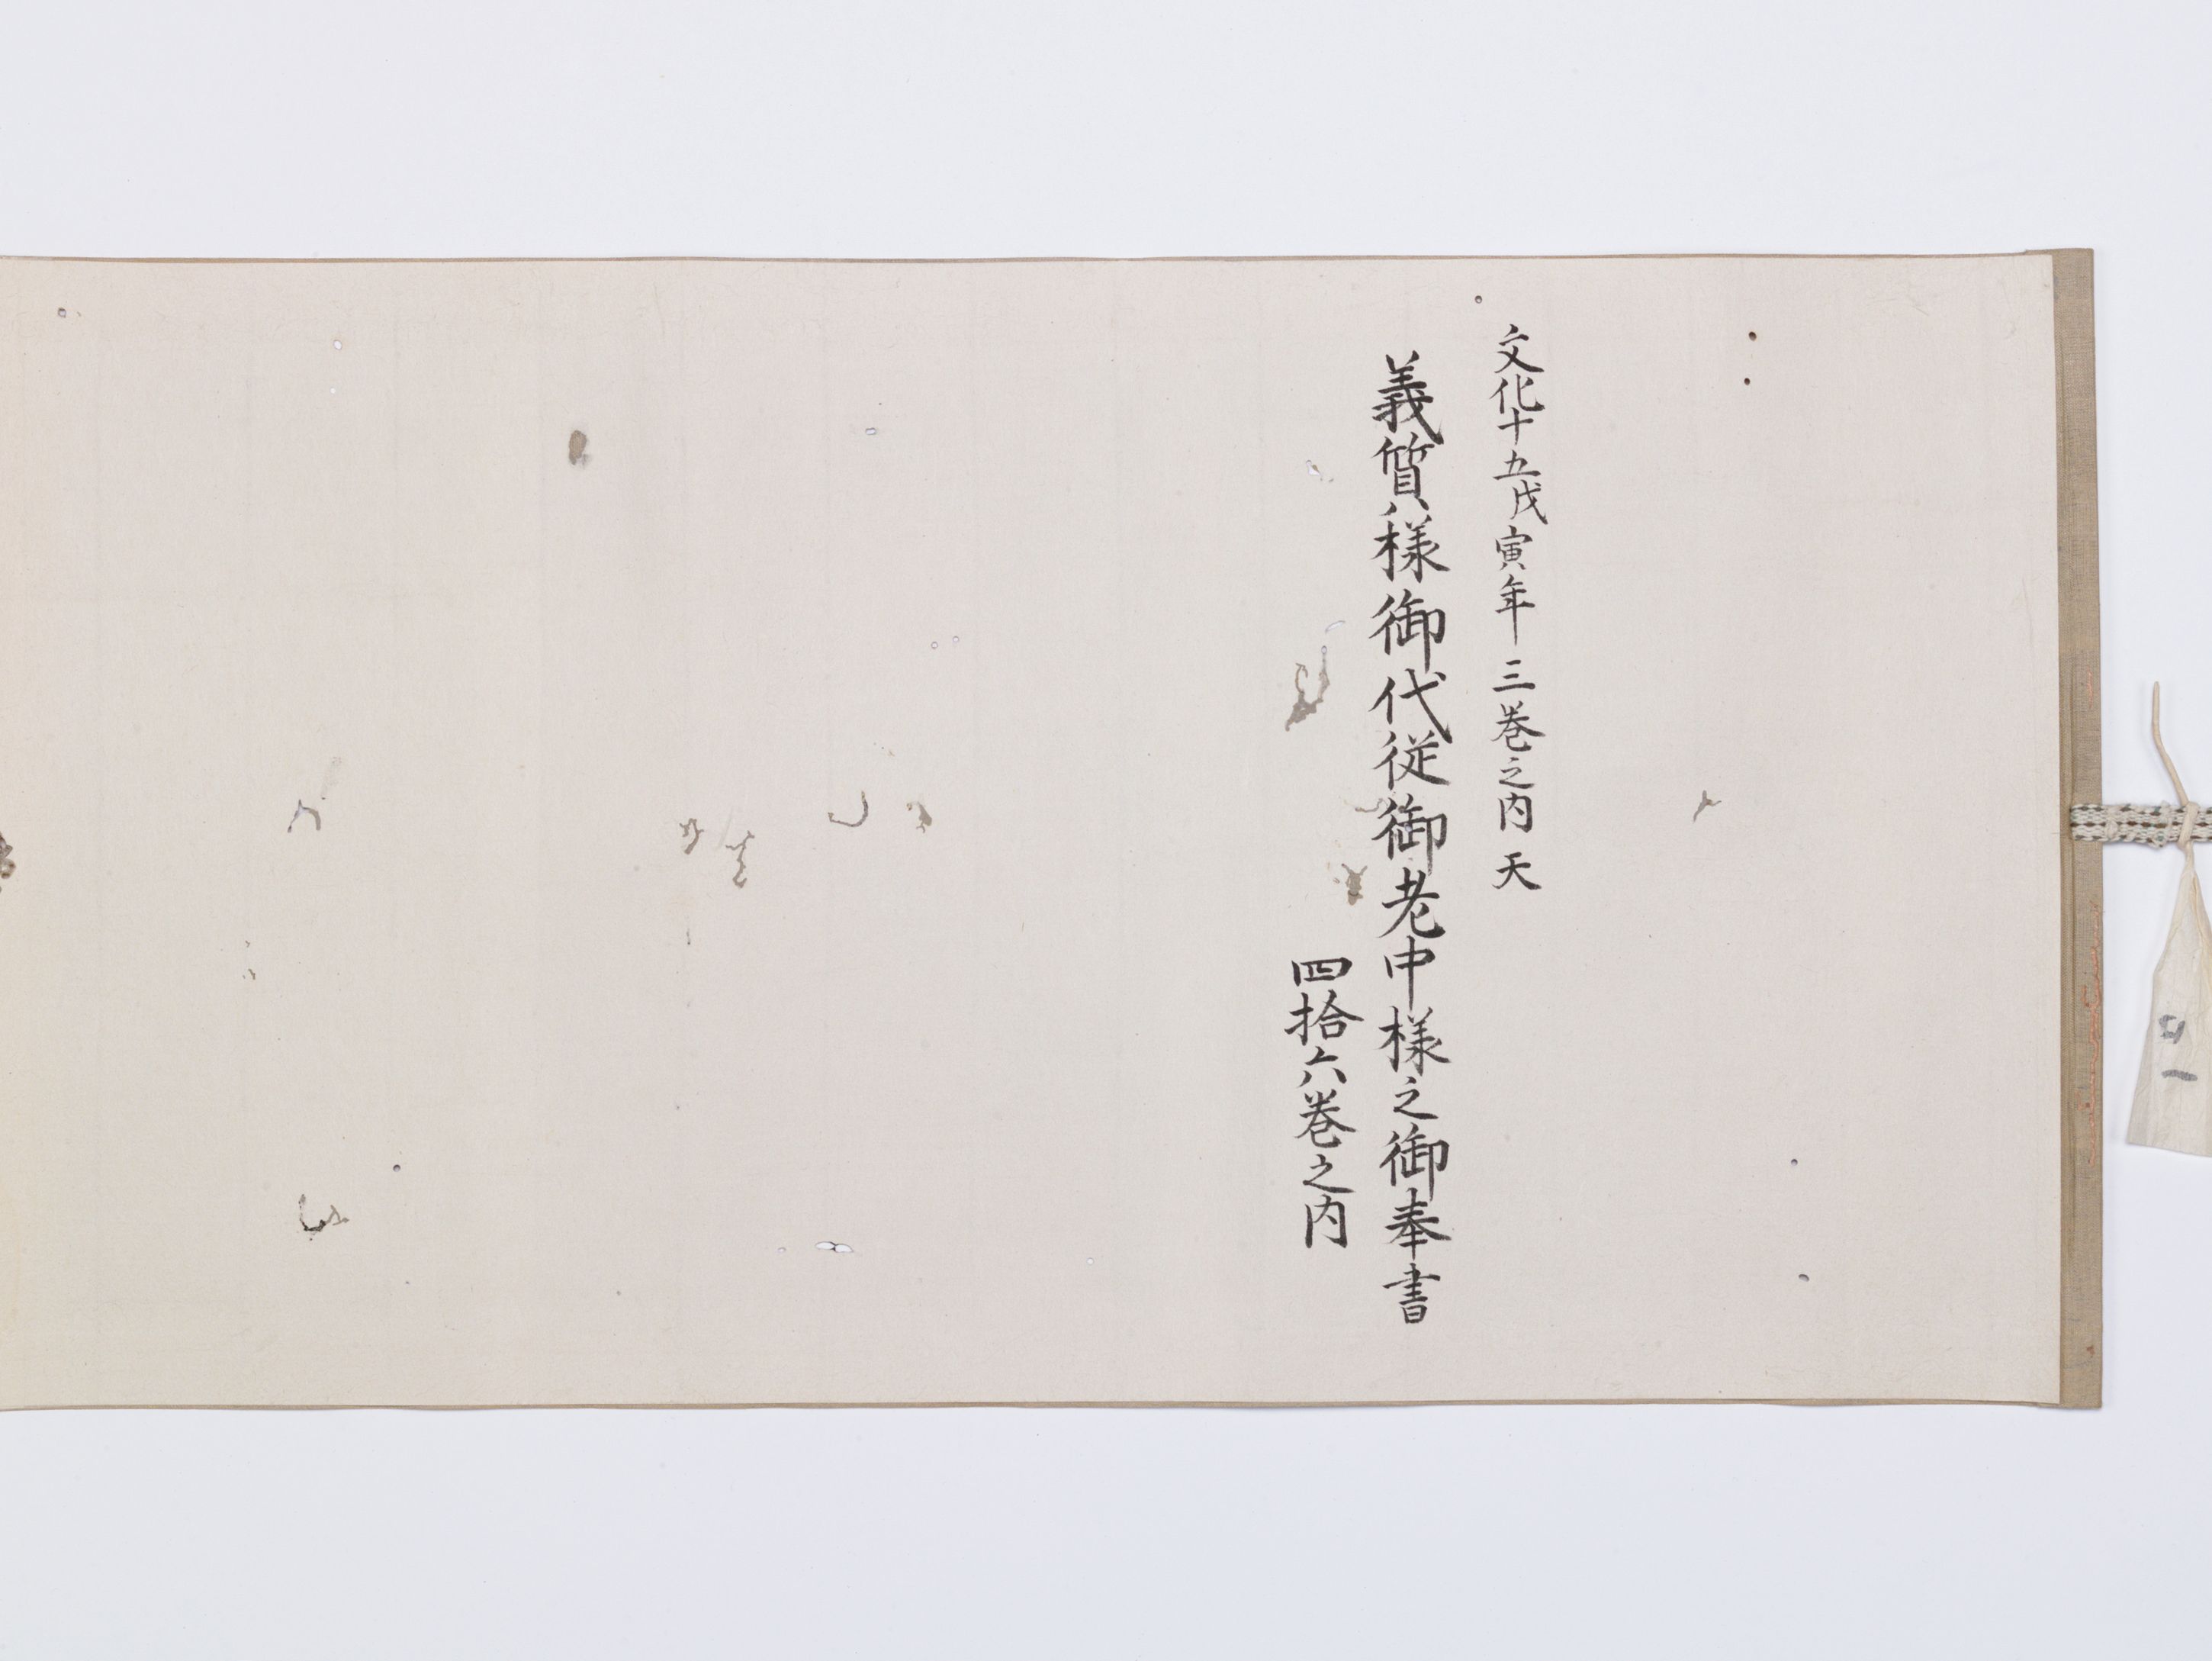 文化十五戊寅年 三巻之内 天
義質様御代従御老中様之御奉書
四拾六巻之内